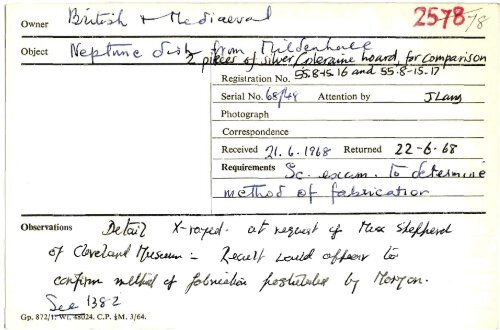 2578/78
Owner British & Mediaeval
Object Neptune dish from Mildenhall
2 pieces of silver, Coleraine hoard, for comparison
Registration No. 55.8-15.16 and 55.8-15.17
Serial No. 68/48 Attention by J Lang
Photograph
Correspondence
Received 21.6.1968 Returned 22-6-68
Requirements Sc. exam. to determine
method of fabrication
Observations Detail X-rayed. at request of Miss Shepherd
of Cleveland Museum – Result would appear to
confirm method of fabrication postulated by Maryon.
See 1382
Gp. 872/1. Wt. 48024. C.P. ½M. 3/64.